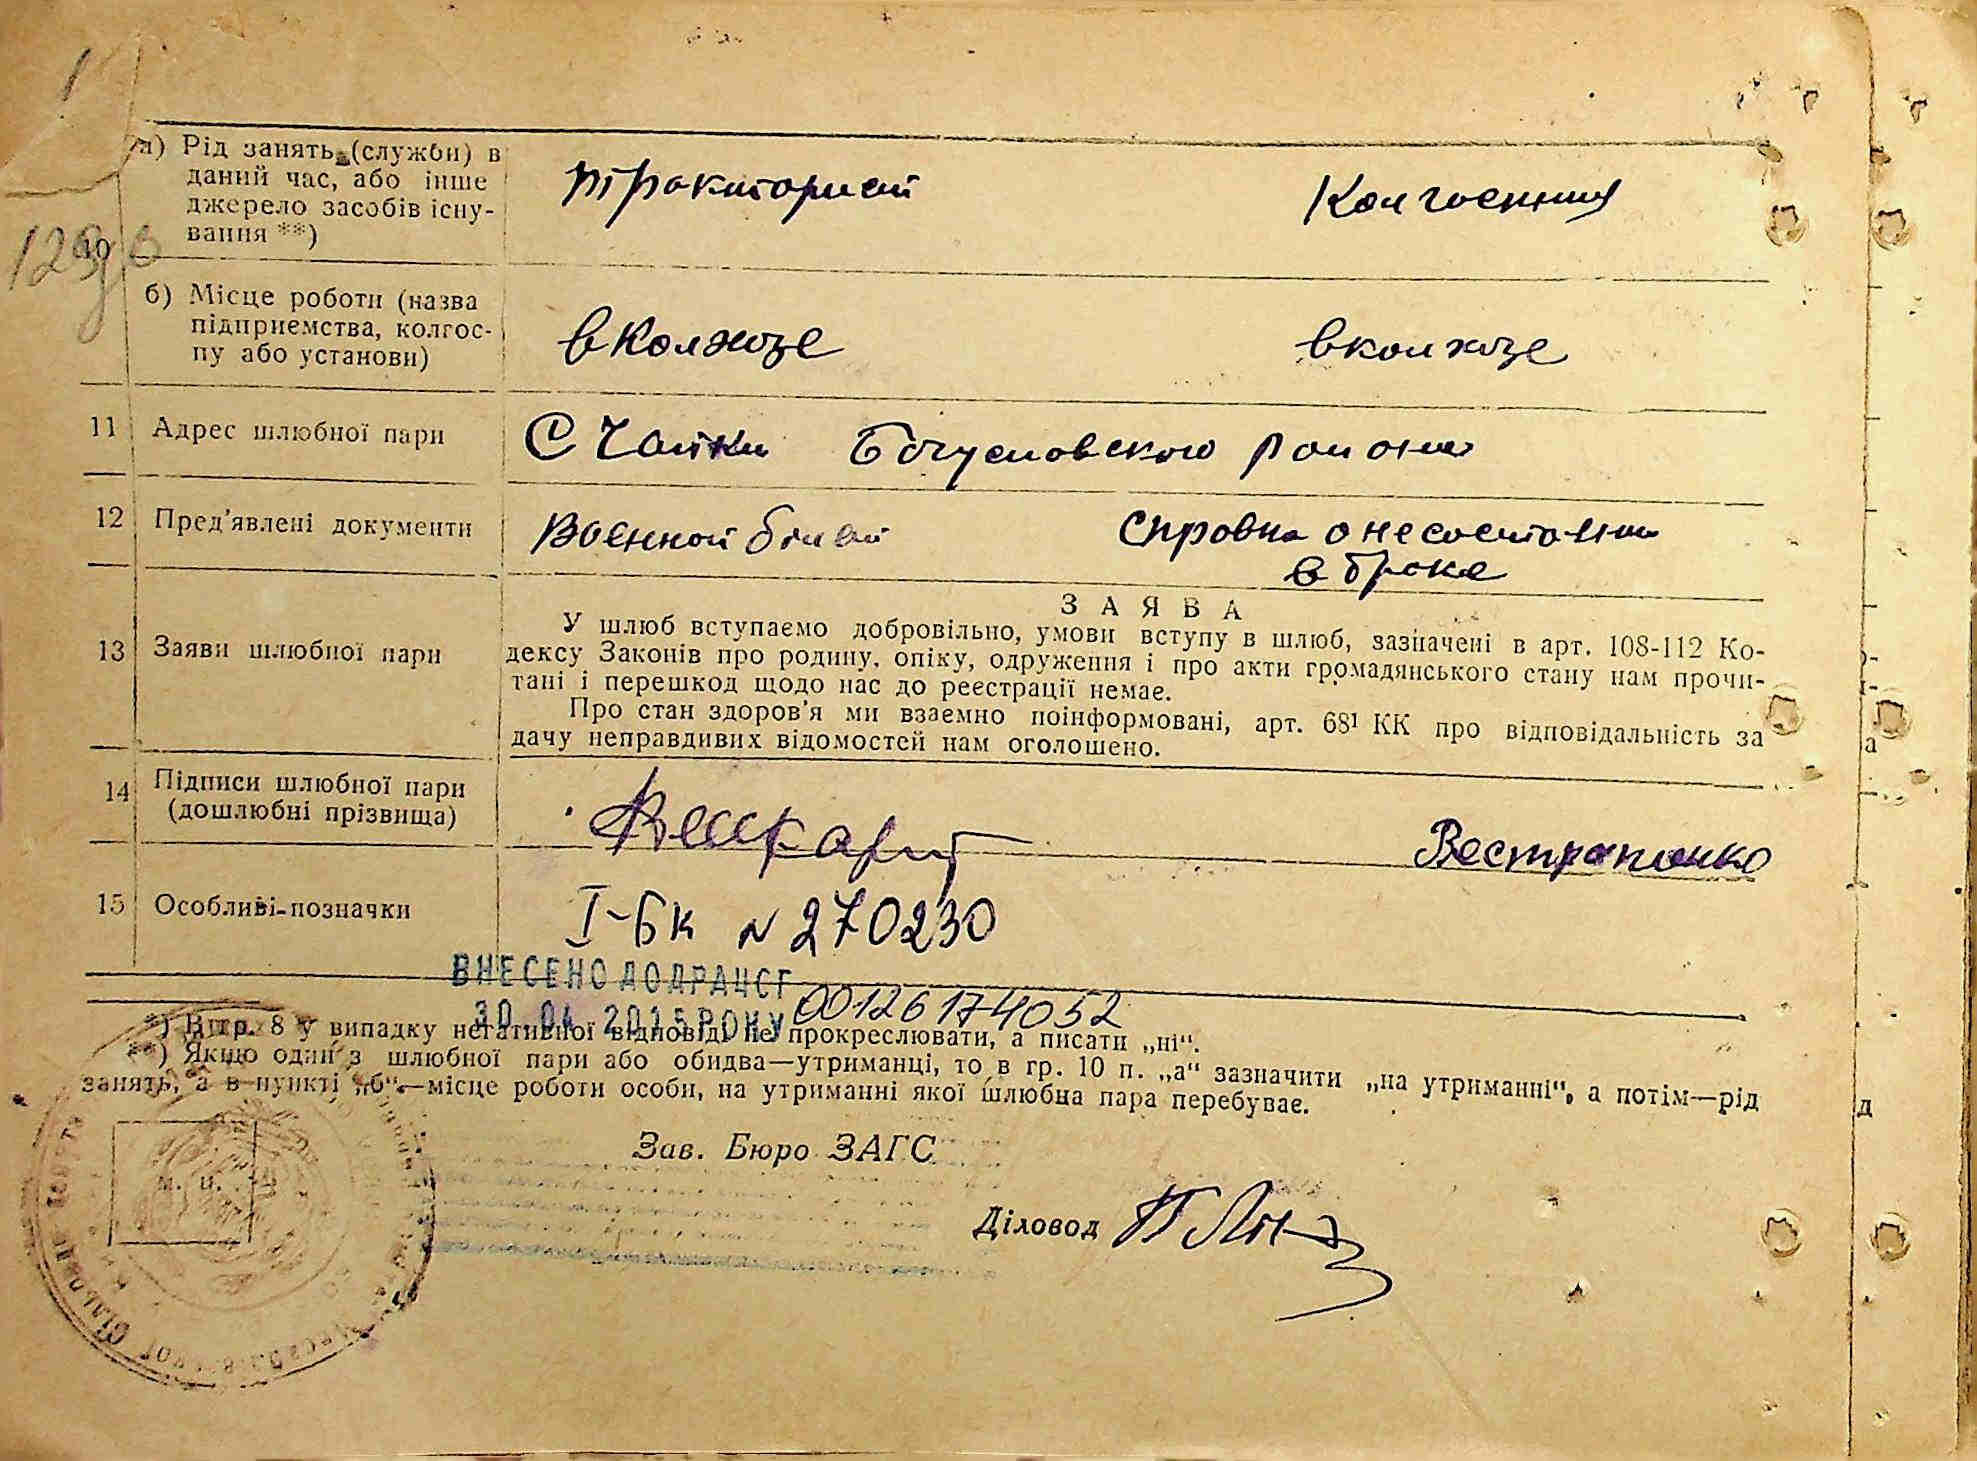 1
129
а) Рід занять (служби) в
даний час, або інше
джерело засобів існу-
вання **)
тракторист
Колгоспниця
10
б) Місце роботи (назва
підприємства, колгос-
пу або установи)
в Колхозе
в колхозе
11 Адрес шлюбної пари
С Чайки Богуславского района
12 Пред'явлені документи
Военной билет
Справка о несостоянии
в браке
З А Я В А
13 Заяви шлюбної пари
У шлюб вступаемо добровільно, умови вступу в шлюб, зазначені в арт. 108-112 Ко-
дексу Законів про родину, опіку, одруження і про акти громадянського стану нам прочи-
тані і перешкод щодо нас до реєстрації немає.
Про стан здоров'я ми взаємно поінформовані, арт. 68¹ КК про відповідальність за
дачу неправдивих відомостей нам оголошено.
14 Підписи шлюбної пари
(дошлюбні прізвища)
15 Особливі позначки
I-БК № 270230
ВНЕСЕНО ДО ДРАЦСГ
30 04 2015 РОКУ 00126174052
*) В гр. 8 у випадку негативної відповіді не прокреслювати, а писати „ні".
**) Якщо один з шлюбної пари або обидва—утриманці, то в гр. 10 п. „а" зазначити „на утриманні", а потім—рід
занять, а в пункті „б"—місце роботи особи, на утриманні якої шлюбна пара перебуває.
Зав. Бюро ЗАГС
Діловод